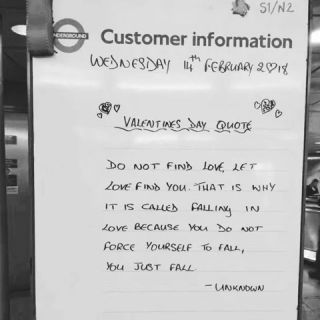 S1/N2
UNDERGROUND
Customer information
WEDNESDAY 14th FEBRUARY 2018
VALENTINES DAY QUOTE
DO NOT FIND LOVE, LET
LOVE FIND YOU. THAT IS WHY
IT IS CALLED FALLING IN
LOVE BECAUSE YOU DO NOT
FORCE YOURSELF TO FALL,
YOU JUST FALL
- UNKNOWN